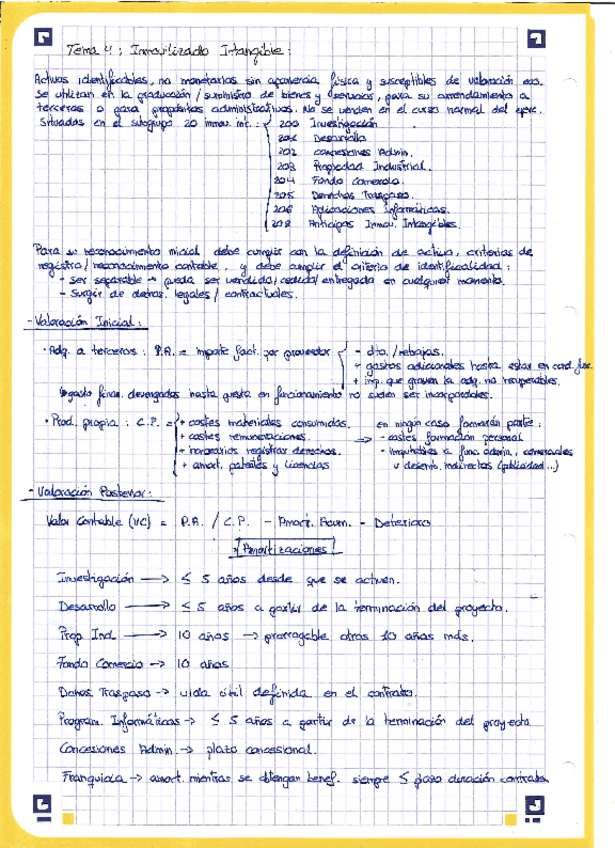 Tema 4: Inmovilizado Intangible:
Activos identificables, no monetarios sin apariencia física y susceptibles de valoración eco.
Se utilizan en la producción / suministro de bienes y servicios, para su arrendamiento a
terceros o para propósitos administrativos. No se venden en el curso normal del ejerc.
Situadas en el subgrupo 20 inmov. int.: 200 Investigación
201 Desarrollo
202 concesiones Admin.
203 Propiedad Industrial.
204 Fondo Comercio.
205 Derechos Traspaso.
206 Aplicaciones informáticas.
209 Anticipos Inmov. Intangibles.
Para su reconocimiento inicial debe cumplir con la definición de activo, criterios de
registro / reconocimiento contable, y debe cumplir el criterio de identificabilidad:
- ser separable → pueda ser vendido, cedido, entregado en cualquier momento.
- Surgir de dchos. legales / contractuales.
- Valoración Inicial:
· Adq. a terceros: P.A. = importe fact. por proveedor - dto. / rebajas.
+ gastos adicionales hasta estar en cond. func.
+ imp. que graven la adq. no recuperables.
↳ gasto financ. devengados hasta puesta en funcionamiento no suelen ser incorporables.
· Prod. propia: C.P. = + costes materiales consumidos. en ningún caso formarán parte:
+ costes remuneraciones. ⇒ - costes formación personal
- honorarios registrar derechos. - imputables a func. admin., comerciales
+ amort. patentes y licencias u desemb. indirectos (publicidad...)
- Valoración Posterior:
Valor Contable (VC) = P.A. / C.P. - Amort. Acum. - Deterioro
Amortizaciones
Investigación → ≤ 5 años desde que se activen.
Desarrollo → ≤ 5 años a partir de la terminación del proyecto.
Prop. Ind. → 10 años → prorrogable otros 10 años más.
Fondo Comercio → 10 años
Dchos. Traspaso → vida útil definida en el contrato.
Program. Informáticas → ≤ 5 años a partir de la terminación del proyecto
Concesiones Admin. → plazo concesional.
Franquicia → amort. mientras se obtengan benef. siempre ≤ plazo duración contrato